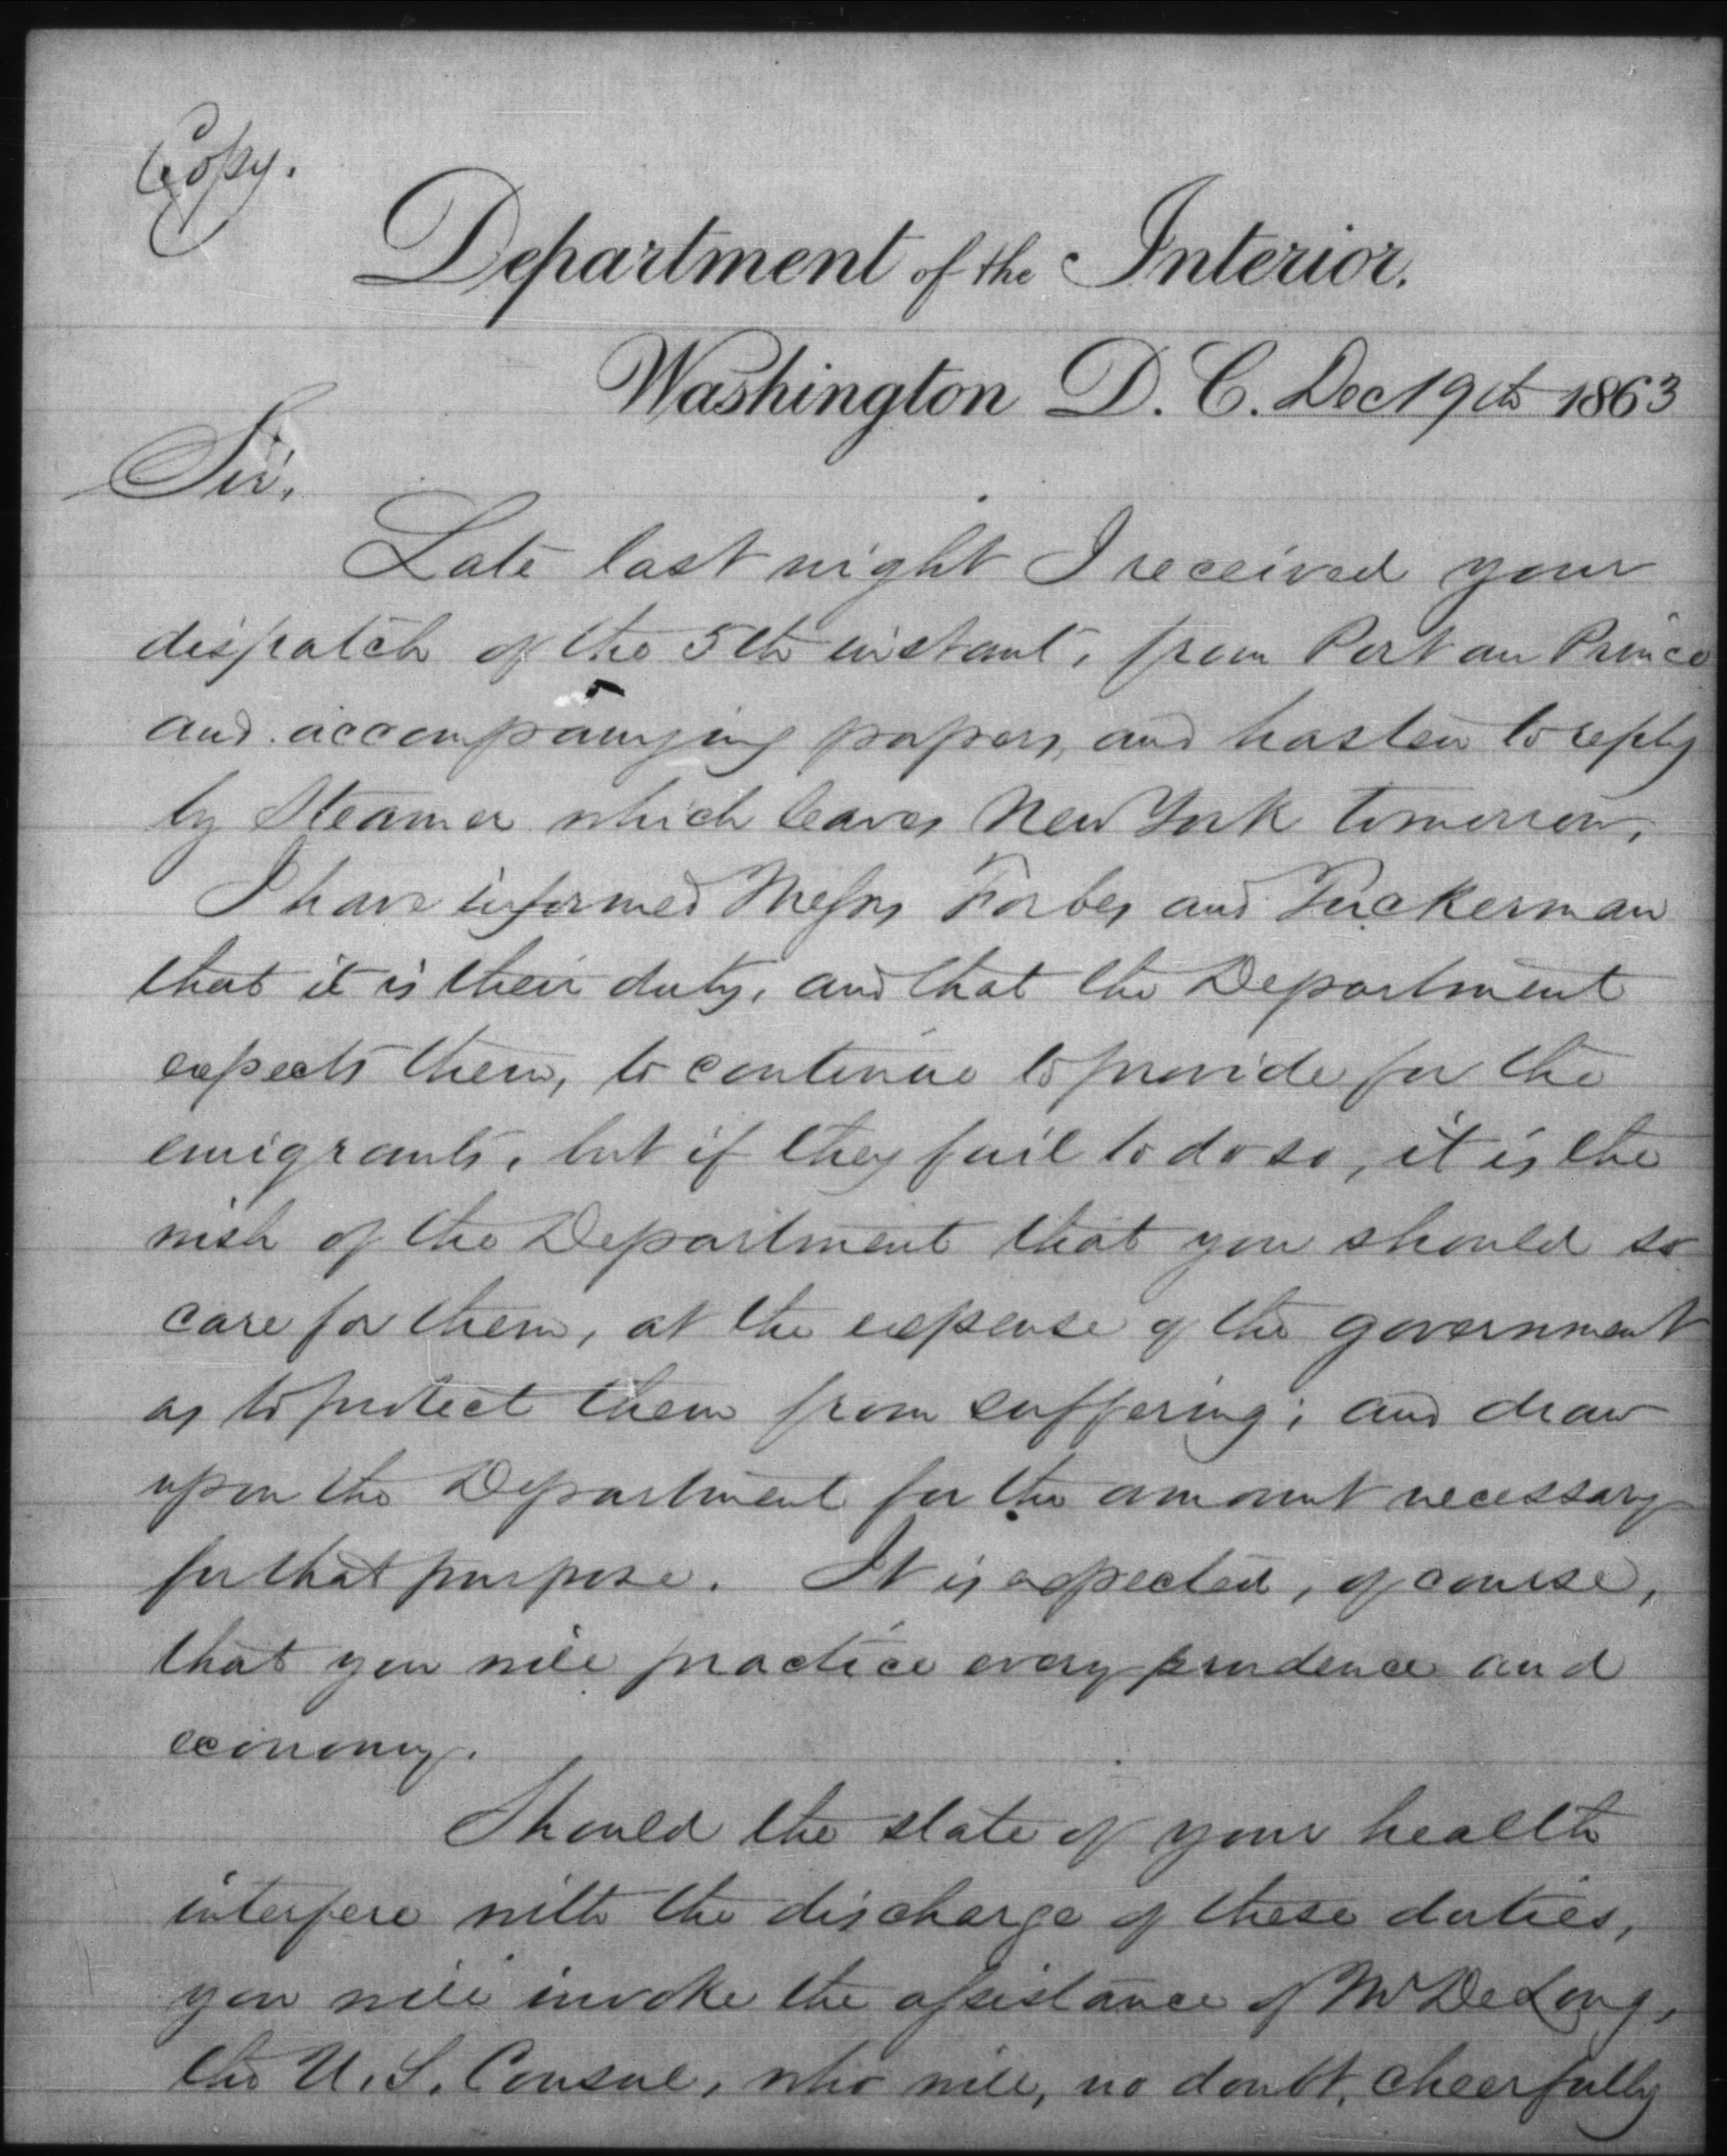 Copy.
Department of the Interior.
Washington D. C. Dec 19th 1863
Sir,
Late last night I received your
dispatch of the 5th instant, from Port au Prince
and accompanying papers, and hasten to reply
by Steamer which leaves New York tomorrow.
I have informed Messrs Forbes and Tuckerman
that it is their duty, and that the Department
expects them, to continue to provide for the
emigrants, but if they fail to do so, it is the
wish of the Department that you should so
care for them, at the expense of the government
as to protect them from suffering; and draw
upon the Department for the amount necessary
for that purpose. It is expected, of course,
that you will practice every prudence and
economy.
Should the state of your health
interfere with the discharge of these duties,
you will invoke the assistance of Mr DeLong,
the U. S. Consul, who will, no doubt, cheerfully